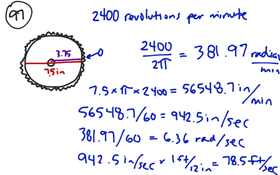 97
2400 revolutions per minute
3.75
7.5in
2400/2π = 381.97 radians/min
7.5 × π × 2400 = 56548.7 in/min
56548.7/60 = 942.5 in/sec
381.97/60 = 6.36 rad/sec
942.5 in/sec × 1ft/12in = 78.5 ft/sec